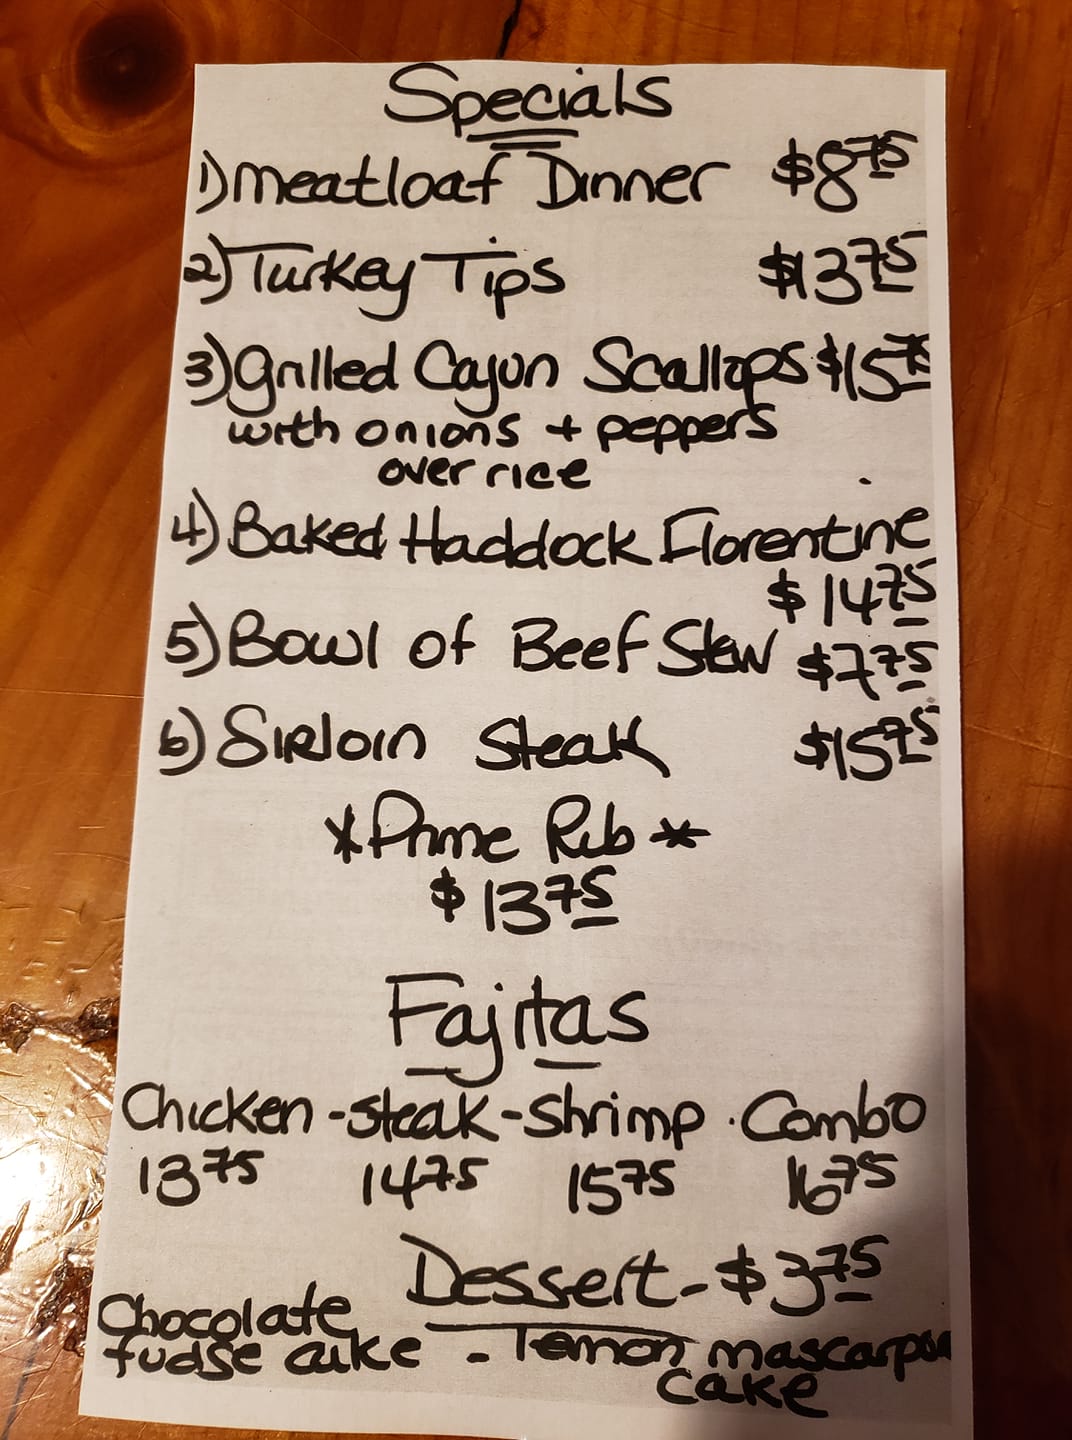 Specials
1) Meatloaf Dinner $8.75
2) Turkey Tips $13.75
3) Grilled Cajun Scallops $15.75
with onions + peppers
over rice
4) Baked Haddock Florentine
$14.75
5) Bowl of Beef Stew $7.75
6) Sirloin Steak $15.75
*Prime Rib*
$13.75
Fajitas
Chicken - Steak - Shrimp . Combo
13.75 14.75 15.75 16.75
Dessert - $3.75
Chocolate
fudge cake - lemon mascarpone
cake